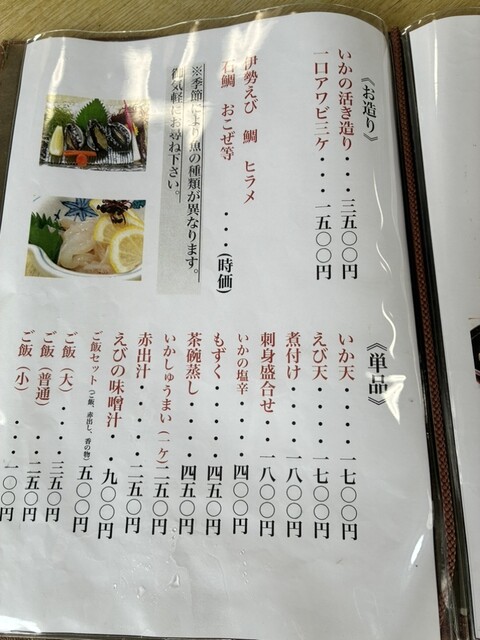 《お造り》
いかの活き造り・・・三五〇〇円
一口アワビ三ケ・・・一五〇〇円
伊勢えび 鯛 ヒラメ
石鯛 おこぜ等・・・(時価)
※季節により魚の種類が異なります。
御気軽にお尋ね下さい。
《単品》
いか天・・・・一七〇〇円
えび天・・・・一七〇〇円
煮付け・・・・一八〇〇円
刺身盛合せ・・・一八〇〇円
いかの塩辛・・・四〇〇円
もずく・・・・四五〇円
茶碗蒸し・・・・四五〇円
いかしゅうまい(一ケ)二五〇円
赤出汁・・・・二五〇円
えびの味噌汁・・九〇〇円
ご飯セット(ご飯、赤出し、香の物)五〇〇円
ご飯(大)・・・・三五〇円
ご飯(普通)・・・二五〇円
ご飯(小)・・・・一〇〇円